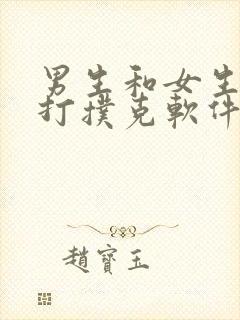 男生和女生
打撲克軟件
趙寶玉